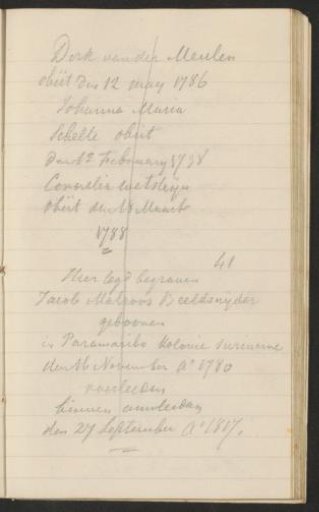 Derk van der Meulen
obiit des 12 may 1786
Johanna Maria
Schelte obiit
den 12 February 1788
Cornelia wetsteijn
obiit den 18 Maart
1788
41
Hier legd begraven
Jacob Matroos Beeldsnyder
gebooren
in Paramaribo Kolonie Suriname
den 16 November Aº 1780
overleeden
binnen Amsterdam
den 27 September Aº 1817.